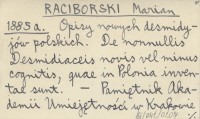 RACIBORSKI Marian
1885 a. Opisy nowych desmidy-
jów polskich. De nonnullis
Desmidiaceis novis vel minus
cognitis, quae in Polonia inven-
tae sunt. — Pamiętnik Aka-
demii Umiejętność w Krakowie